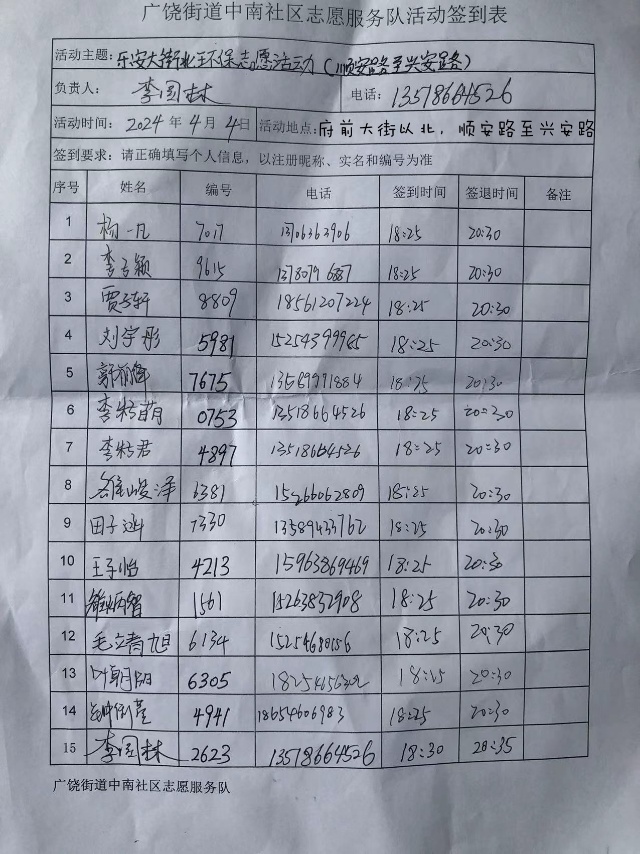 广饶街道中南社区志愿服务队活动签到表
活动主题: 乐安大街北环保志愿活动(顺安路至兴安路)
负责人: 李国林 电话: 13518664526
活动时间: 2024年4月4日 活动地点: 府前大街以北,顺安路至兴安路
签到要求:请正确填写个人信息,以注册昵称、实名和编号为准
序号 姓名 编号 电话 签到时间 签退时间 备注
1 杨一凡 7017 18:25 20:30
2 李子颖 9615 18:25 20:30
3 贾子轩 8809 18561207224 18:25 20:30
4 刘宇彤 5981 15254399965 18:25 20:30
5 7675 13569971884 18:25 20:30
6 0753 13518664526 18:25 20:30
7 4897 13518664526 18:25 20:30
8 6381 15266062809 18:25 20:30
9 田子涵 7330 13589433762 18:25 20:30
10 王子怡 4213 15963869469 18:25 20:30
11 1561 15263832908 18:25 20:30
12 6134 18:25 20:30
13 叶朝阳 6305 18:25 20:30
14 4941 18654606983 18:25 20:30
15 李国林 2623 13518664526 18:30 20:35
广饶街道中南社区志愿服务队